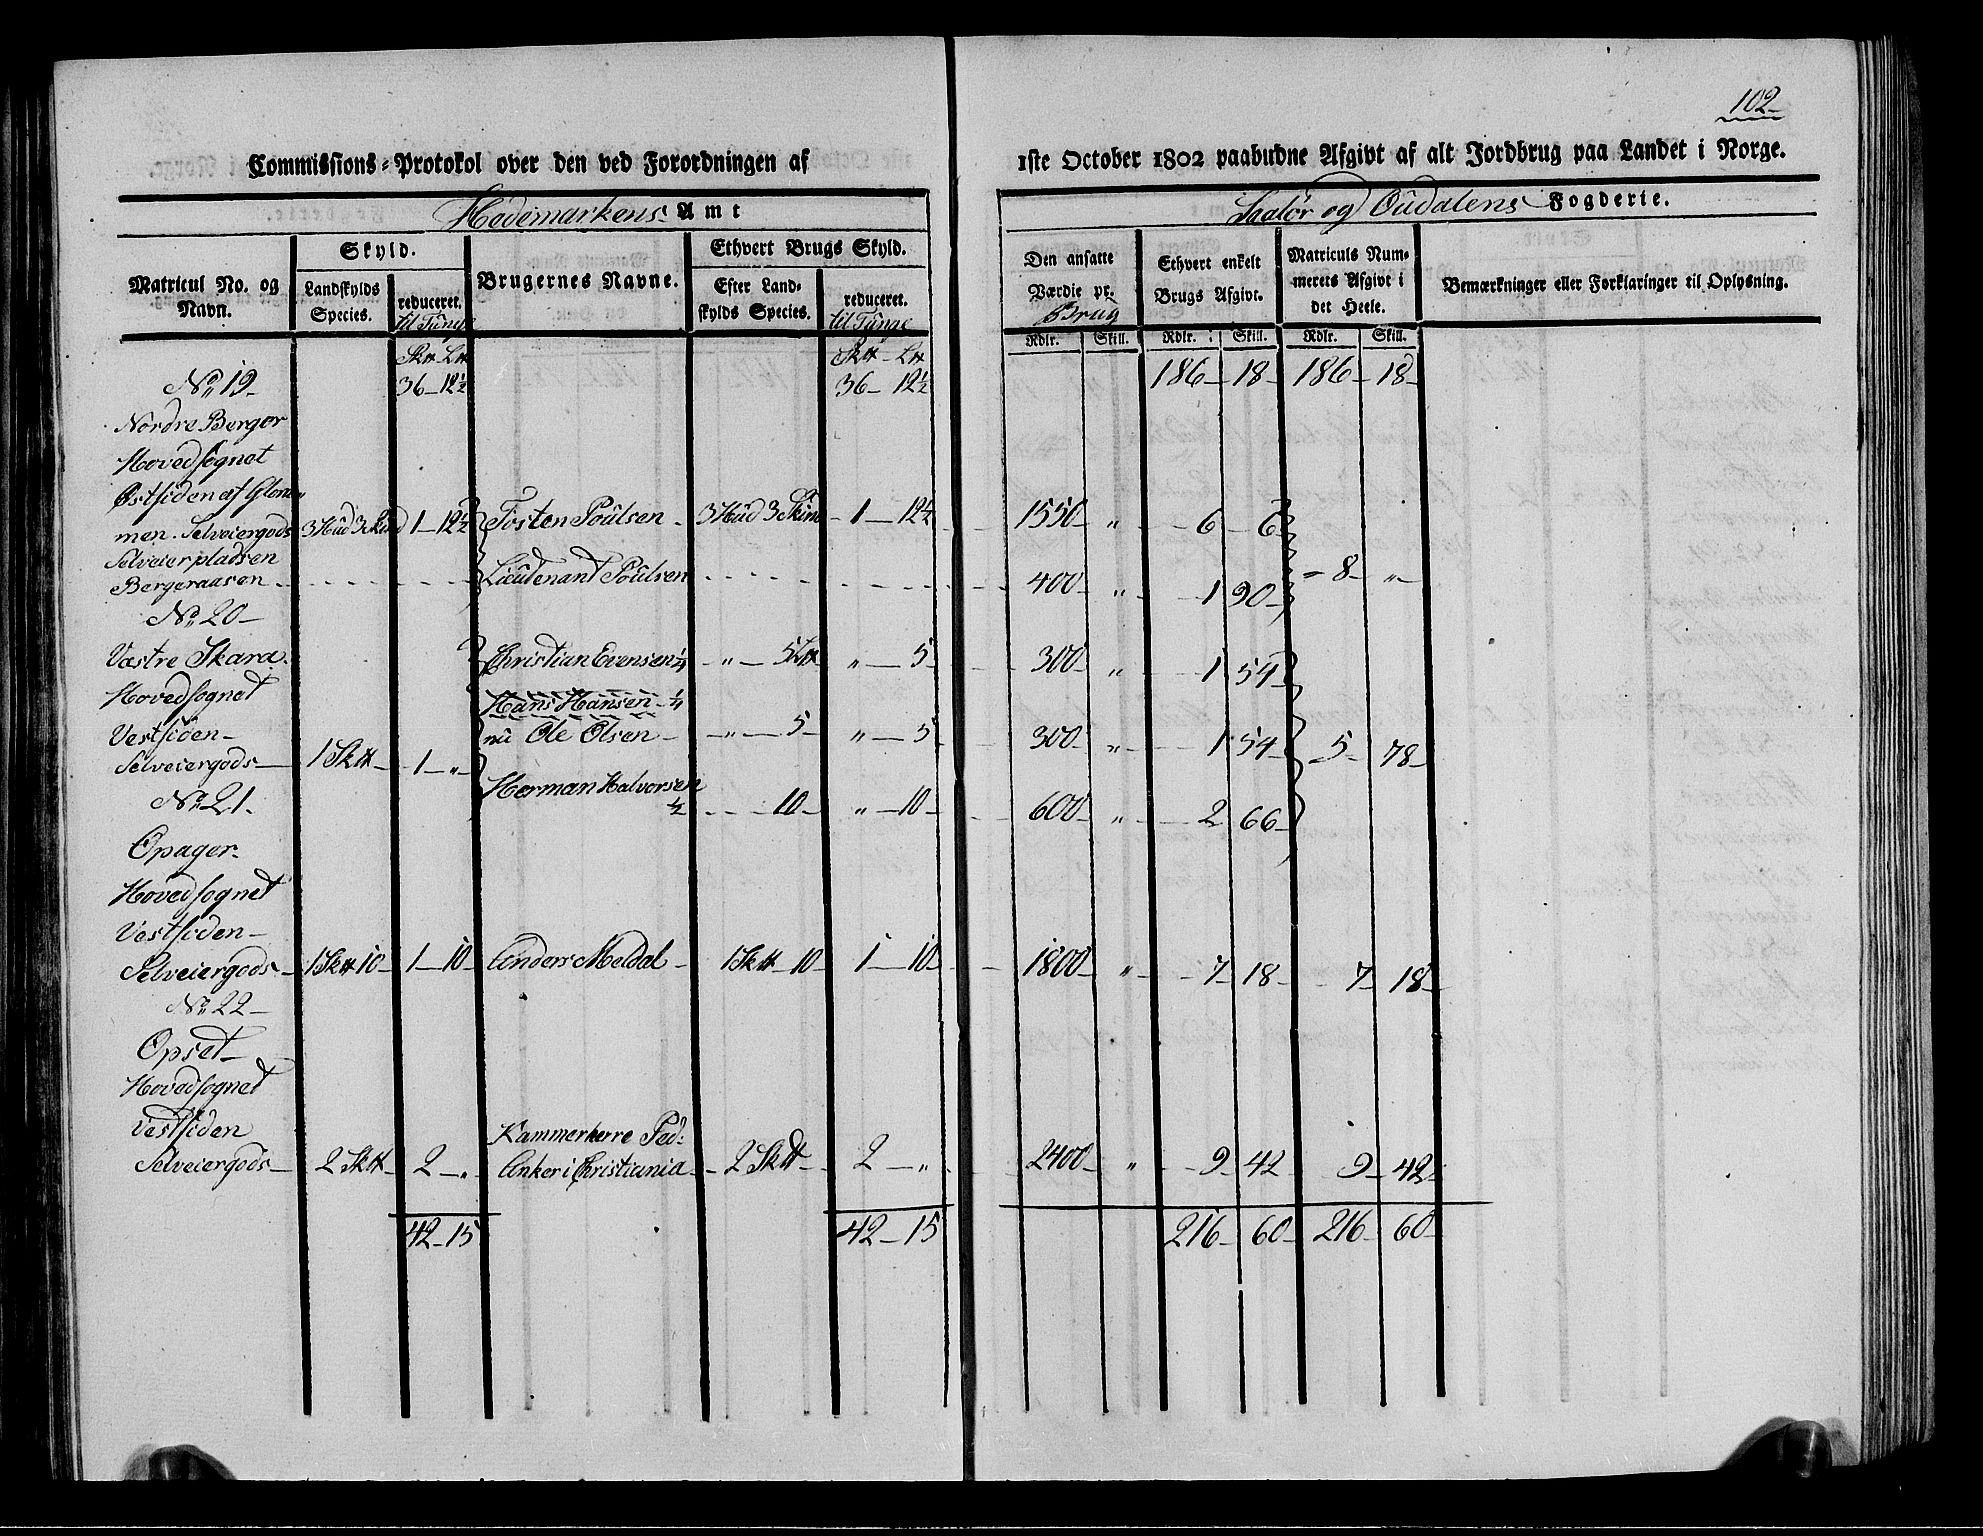 102
Commissions-Protokol over den ved Forordningen af 1ste October 1802 paabudne Afgivt af alt Jordbrug paa Landet i Norge.
Hedemarkens Amt Soelør og Oudalens Fogderie.
Matricul No. og Navn. Skyld. Brugernes Navne. Ethvert Brugs Skyld. Den ansatte Værdie pr. Brug Ethvert enkelt Brugs Afgivt. Matriculs Nummerets Afgivt i det Heele. Bemærkninger eller Forklaringer til Oplysning.
Landskylds Species. reduceret. til Tunge Efter Landskylds Species. reduceret. til Tunge
Rdlr. Skill. Rdlr. Skill. Rdlr. Skill.
Sk℔ L℔ Sk℔ - L℔
No 19 36 - 12½ 36 - 12½ 186 - 18 - 186 - 18 -
Nordre Berger
Hovedsognet
Østsiden af Glom-
men. Selveiergods 3 Hud 3 Skind 1 - 12½ Tosten Poulsen - 3 Hud 3 Skind - 1 - 12½ 1550 - " - 6 - 6
Selveierpladsen
Bergeraasen Lieutenant Poulsen 400 - " - 1 90 - 8 - " -
No 20 -
Vestre Skara. Christian Evensen ¼ - " - 5 L℔ " - 5 300 - " - 1 54
Hovedsognet Hans Hansen - ¼
Vestsiden - nu Ole Olsen - - " - 5 - " - 5 300 - " - 1 54 5 - 78 -
Selveiergods 1 Sk℔ - 1 - "
No 21. Herman Halvorsen ½ - 10 - " - 10 - 600 - " - 2 66 -
Opager.
Hovedsognet
Vestsiden -
Selveiergods - 1 Sk℔ 10 - 1 - 10 - Anders Meldal - 1 Sk℔ - 10 - 1 - 10 - 1800 - " - 7 - 18 - 7 - 18 -
No 22 -
Opset -
Hovedsognet
Vestsiden Kammerherre Ped:
Selveiergods - 2 Sk℔ - 2 - " Anker i Christiania - 2 Sk℔ - 2 - " 2400 - " - 9 - 42 9 - 42 -
42 - 15 42 - 15 216 - 60 - 216 - 60 -